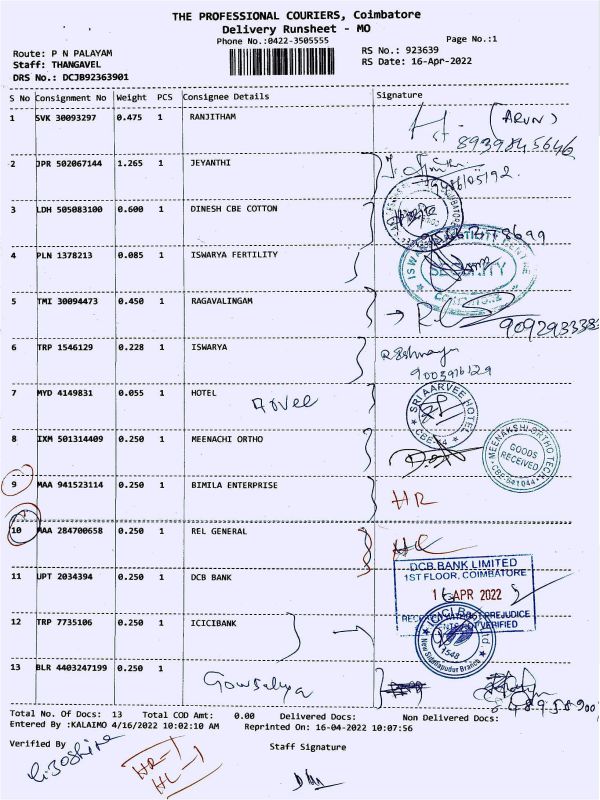 THE PROFESSIONAL COURIERS, Coimbatore
Delivery Runsheet - MO
Phone No.:0422-3505555
Page No.:1
Route: P N PALAYAM
RS No.: 923639
Staff: THANGAVEL
RS Date: 16-Apr-2022
DRS No.: DCJB92363901
S No Consignment No Weight PCS Consignee Details Signature
1 SVK 30093297 0.475 1 RANJITHAM (ARUN)
8939845646
2 JPR 502067144 1.265 1 JEYANTHI
3 LDH 505083100 0.600 1 DINESH CBE COTTON
4 PLN 1378213 0.085 1 ISWARYA FERTILITY
SECURITY
5 TMI 30094473 0.450 1 RAGAVALINGAM
6 TRP 1546129 0.228 1 ISWARYA
7 MYD 4149831 0.055 1 HOTEL
SRI AARVEE HOTEL
8 IXM 501314409 0.250 1 MEENACHI ORTHO
MEENAKSHI ORTHO TECH
GOODS
RECEIVED
CBE-641044
9 MAA 941523114 0.250 1 BIMILA ENTERPRISE HR
10 MAA 284700658 0.250 1 REL GENERAL HL
DCB BANK LIMITED
1ST FLOOR, COIMBATORE
11 UPT 2034394 0.250 1 DCB BANK
16 APR 2022
12 TRP 7735106 0.250 1 ICICIBANK
New Siddhapudur Branch
13 BLR 4403247199 0.250 1 Gowsalya
Total No. Of Docs: 13 Total COD Amt: 0.00 Delivered Docs: Non Delivered Docs:
Entered By :KALAIMO 4/16/2022 10:02:10 AM Reprinted On: 16-04-2022 10:07:56
Verified By Staff Signature
HR-1
HL-1